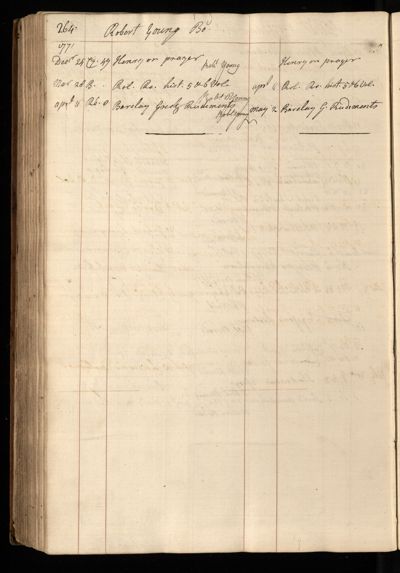 264 Robert Young Bo
1771
Decr 24 Henry on prayer Robt Young Henry on prayer
Rol. Ro. hist. 5 & 6 Vol. aprl Rol. Ro. hist. 5 & 6 Vol.
aprl 11 Barclay Greek Rudiments Robt Young may 2 Barclay G. Rudiments